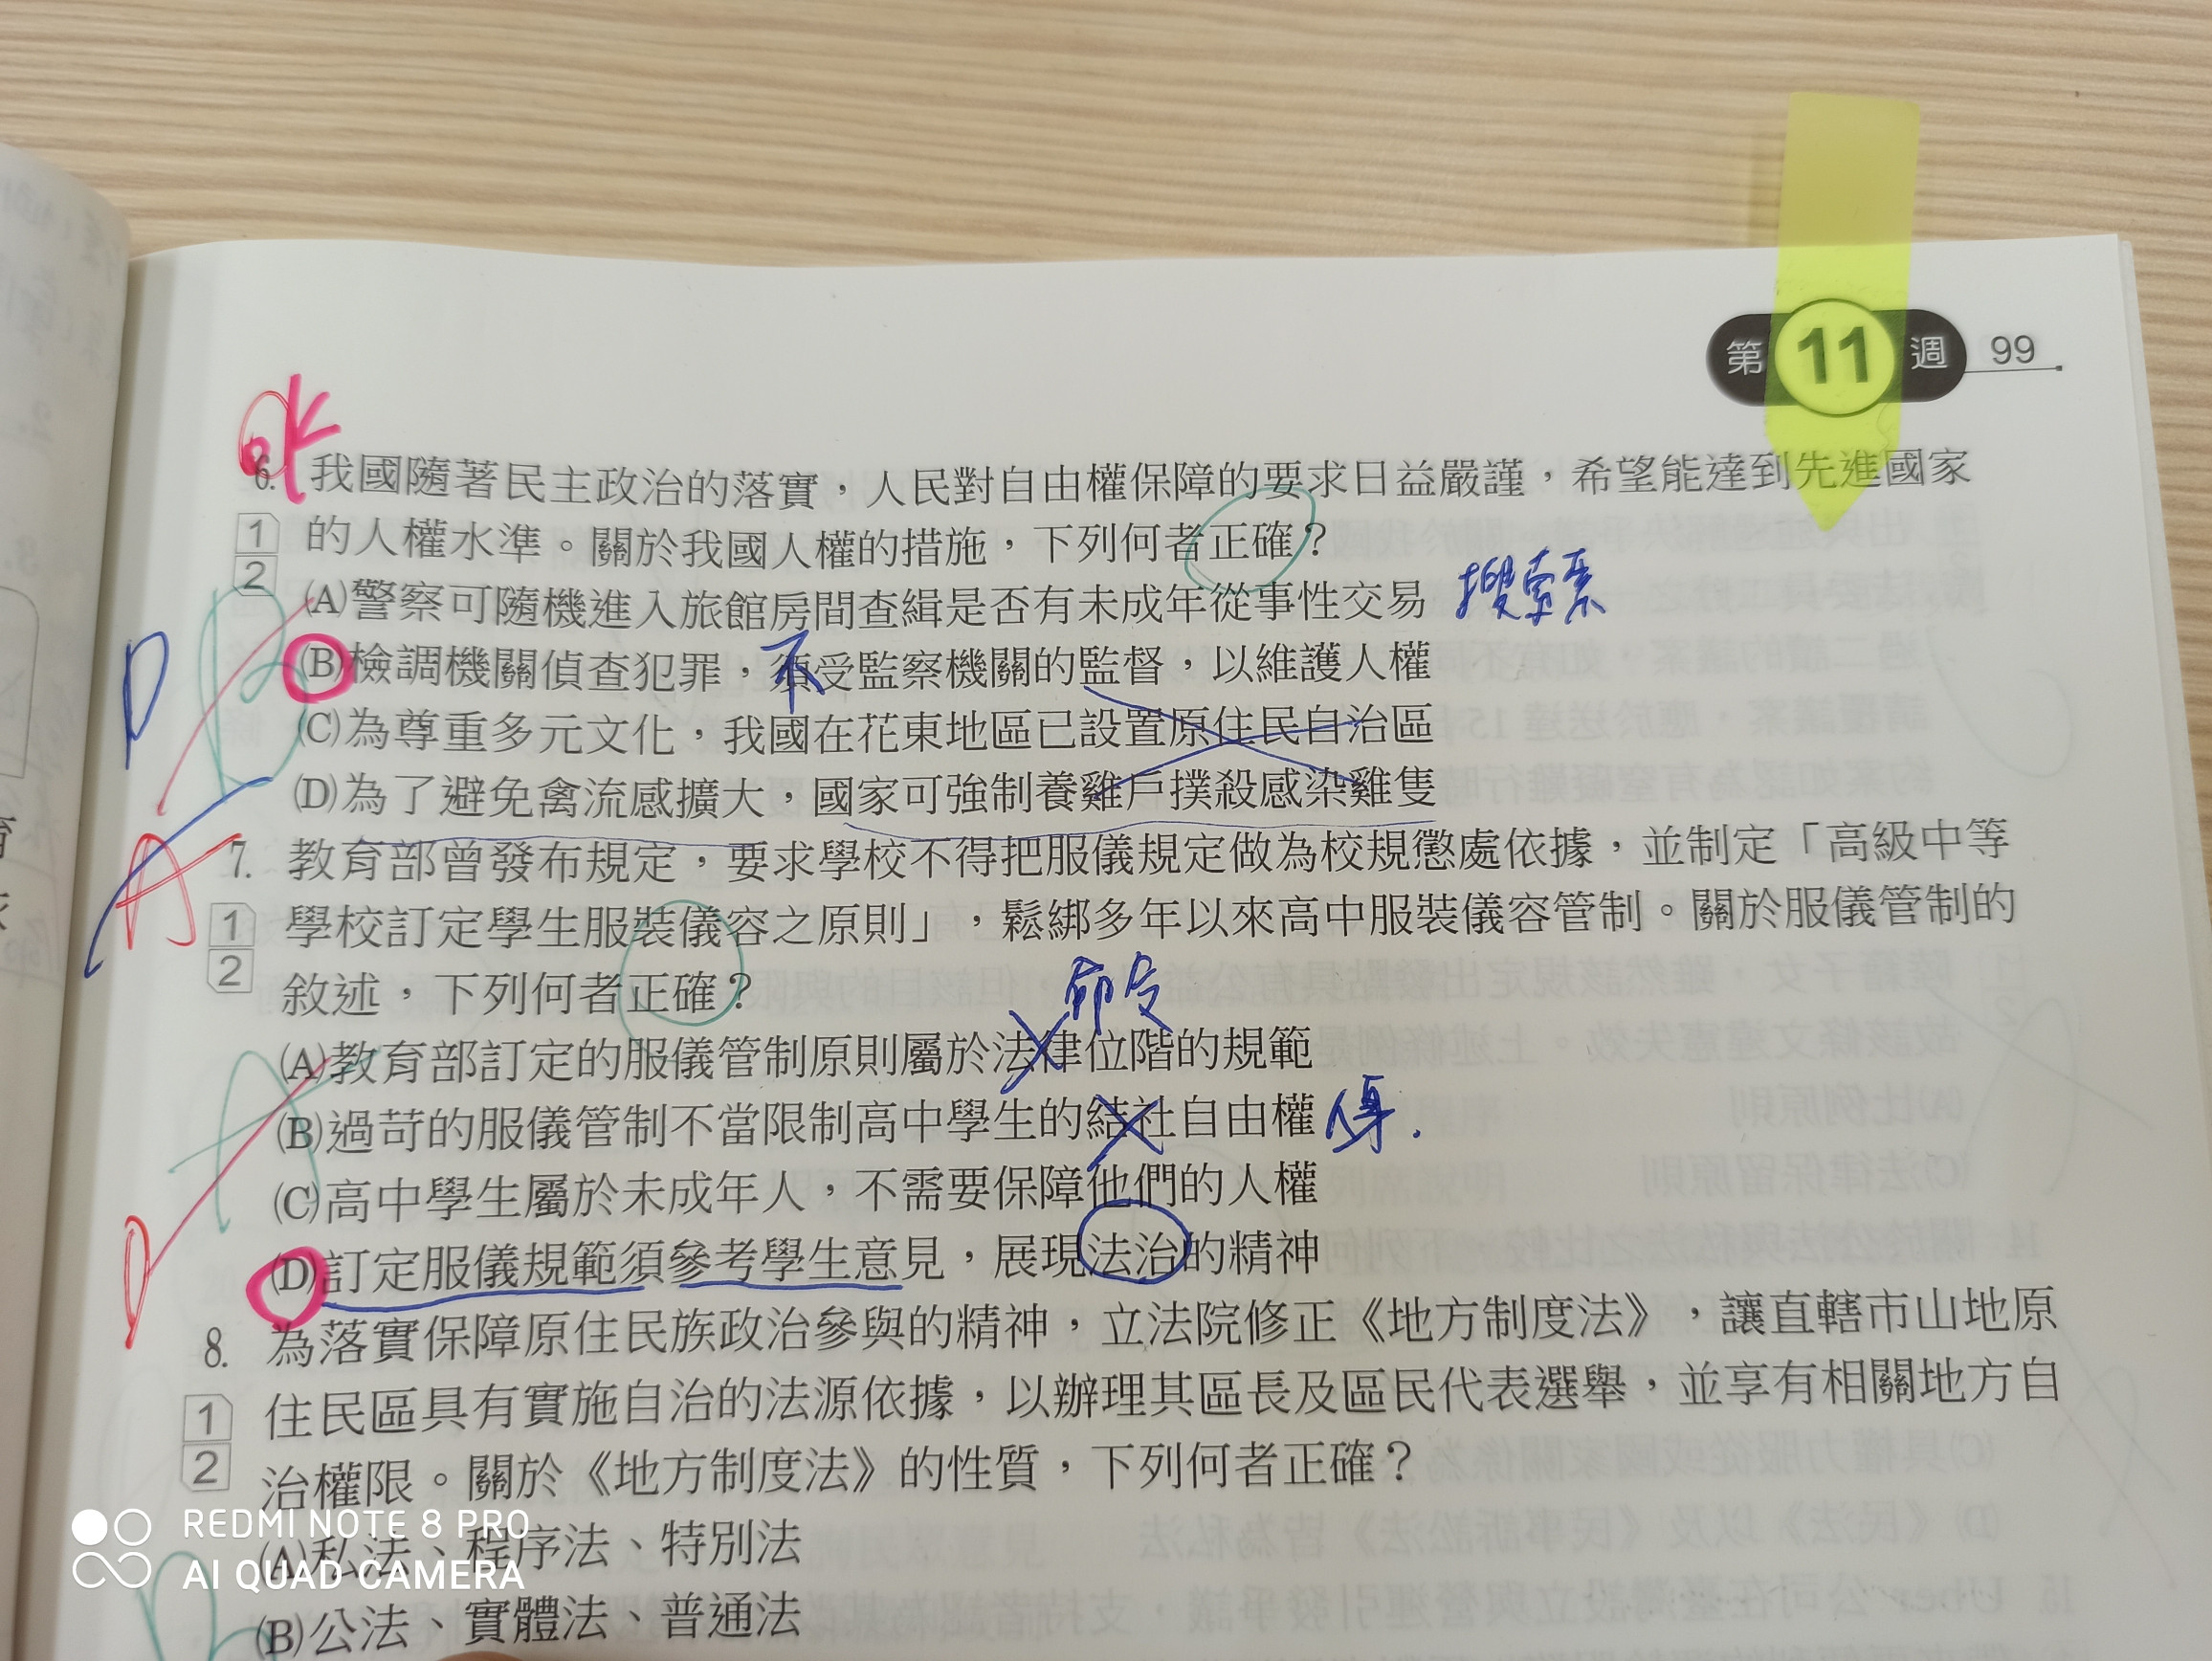 第 11 週 99
OK
6. 我國隨著民主政治的落實，人民對自由權保障的要求日益嚴謹，希望能達到先進國家
1 的人權水準。關於我國人權的措施，下列何者正確？
2
(A)警察可隨機進入旅館房間查緝是否有未成年從事性交易 搜索票
(B)檢調機關偵查犯罪，須受監察機關的監督，以維護人權
不
(C)為尊重多元文化，我國在花東地區已設置原住民自治區
D
(D)為了避免禽流感擴大，國家可強制養雞戶撲殺感染雞隻
A
7. 教育部曾發布規定，要求學校不得把服儀規定做為校規懲處依據，並制定「高級中等
1 學校訂定學生服裝儀容之原則」，鬆綁多年以來高中服裝儀容管制。關於服儀管制的
2 敘述，下列何者正確？
命令
(A)教育部訂定的服儀管制原則屬於法律位階的規範
A
(B)過苛的服儀管制不當限制高中學生的結社自由權 人身.
(C)高中學生屬於未成年人，不需要保障他們的人權
D
(D)訂定服儀規範須參考學生意見，展現法治的精神
8. 為落實保障原住民族政治參與的精神，立法院修正《地方制度法》，讓直轄市山地原
1 住民區具有實施自治的法源依據，以辦理其區長及區民代表選舉，並享有相關地方自
2 治權限。關於《地方制度法》的性質，下列何者正確？
(A)私法、程序法、特別法
(B)公法、實體法、普通法
REDMI NOTE 8 PRO
AI QUAD CAMERA